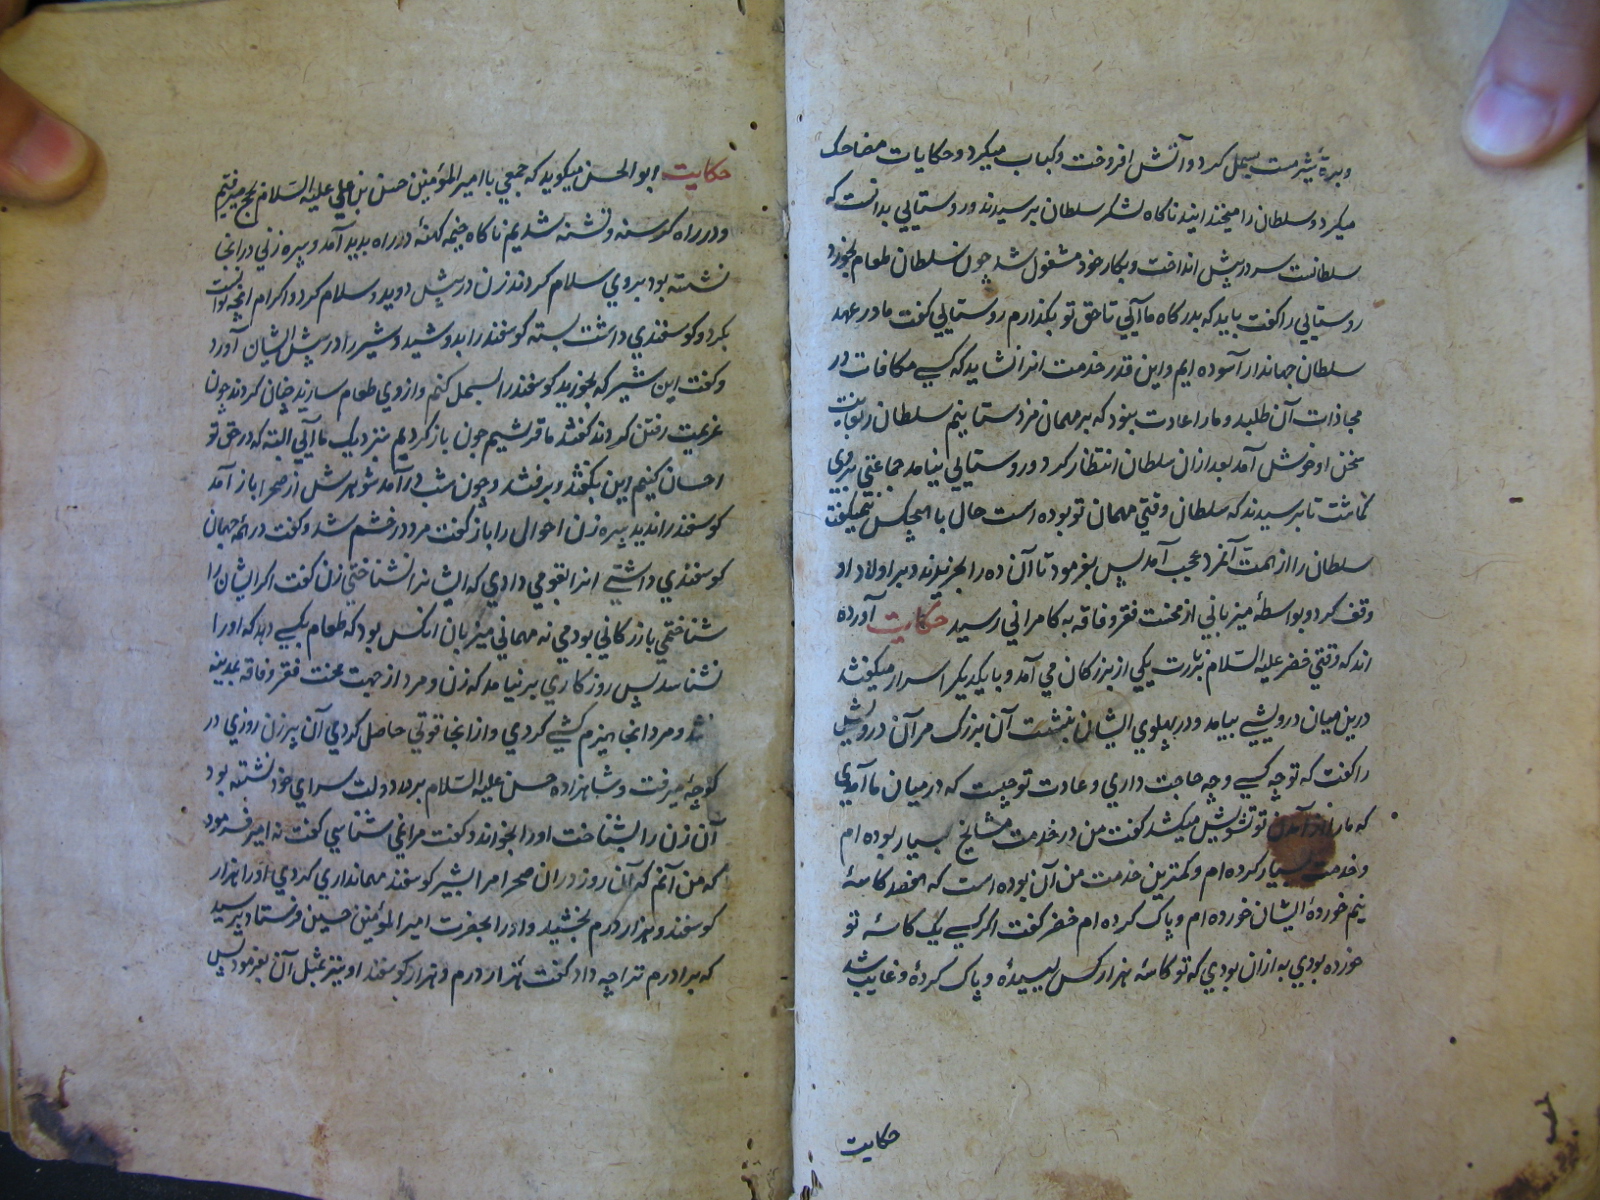 و برهٔ شیرمست بسمل کرد و آتش افروخت و کباب میکرد و حکایات مضاحک
میکرد و سلطان را میخندانید ناکاه لشکر سلطان برسیدند و روستایی بدانست که
سلطانست سر در پیش انداخت و بکار خود مشغول شد چون سلطان طعام بخورد
روستایی را کفت باید که بدرکاه ما آیی تا حق تو بکذارم روستایی کفت ما در عهد
سلطان جهاندار آسوده ایم و این قدر خدمت انرا نشاید که کسی مکافات در
مجاذات آن طلبد و ما را عادت نبود که بر مهمان مزد ستانیم سلطان را بغایت
سخن او خوش آمد بعد ازان سلطان انتظار کرد و روستایی نیامد جماعتی بروی
کماشت تا برسیدند که سلطان وقتی مهمان تو بوده است حال با هیچکس نمیکفت
سلطان را از همت آنمرد عجب آمد پس بفرمود تا آن ده را بخریدند و بر اولاد او
وقف کرد و بواسطهٔ میزبانی از محنت فقر و فاقه به کامرانی رسید حکایت آورده
اند که وقتی خضر علیه السلام بزیارت یکی از بزرکان می آمد و با یکدیکر اسرار میکفتند
درین میان درویشی بیامد و در پهلوی ایشان بنشست آن بزرک مر آن درویش
را کفت که تو چه کسی و چه حاجت داری و عادت تو چیست که در میان ما آمدی
که ما را از آمدن تو تشویش میکشد کفت من در خدمت مشایخ بسیار بوده ام
و خدمت بسیار کرده ام و کمترین خدمت من آن بوده است که هفصد کاسهٔ
نیم خوردهٔ ایشان خورده ام و پاک کرده ام خضر کفت اکر کسی یک کاسهٔ تو
خورده بودی به ازان بودی که تو کاسهٔ هزار کس لیسیدهٔ و پاک کردهٔ و غایب شد
حکایت
حکایت ابو الحسن میکوید که جمعی با امیر المؤمنین حسن بن علی علیه السلام بحج میرفتیم
و در راه کرسنه و تشنه شدیم ناکاه خیمه کهنهٔ در راه پدید آمد و پیره زنی در انجا
نشسته بود بروی سلام کردند زن در پیش دوید و سلام کرد و اکرام انچه توانست
بکرد و کوسفندی داشت بسته کوسفند را بدوشید و شیر را در پیش ایشان آورد
و کفت این شیر که بخورید کوسفند را بسمل کنم و ازوی طعام سازید چنان کردند چون
عزیمت رفتن کردند کفتند ما قرشیم چون باز کردیم بنزدیک ما آیی البته که در حق تو
احسان کنیم این بکفتند و برفتند و چون شب درآمد شوهرش از صحرا باز آمد
کوسفند را ندید پیره زن احوال را باز کفت مرد در خشم شد و کفت در همه جهان
کوسفندی داشتی انرا بقومی دادی که ایشانرا نشناختی زن کفت اکر ایشان را
شناختمی بازرکانی بودمی نه مهمانی میزبان انکس بود که طعام بکسی دهد که او را
نشناسد پس روزکاری برنیامد که زن و مرد از جهت محنت فقر و فاقه بمدینه
شد و مرد انجا هیزم کشی کردی و از انجا قوتی حاصل کردمی آن پیرزن روزی در
کوچهٔ میرفت و شاهزاده حسن علیه السلام بر در دولت سرای خود نشسته بود
آن زن را بشناخت او را بخواند و کفت مرا می شناسی کفت نه امیر فرمود
که من آنم که آن روز دران صحرا مرا بشیر کوسفند مهمانداری کردی او را هزار
کوسفند و هزار درم بخشید و او را بحضرت امیر المؤمنین حسین فرستاد پرسید
که برادرم ترا چه داد کفت هزار درم و هزار کوسفند او نیز بمثل آن بفرمود پس